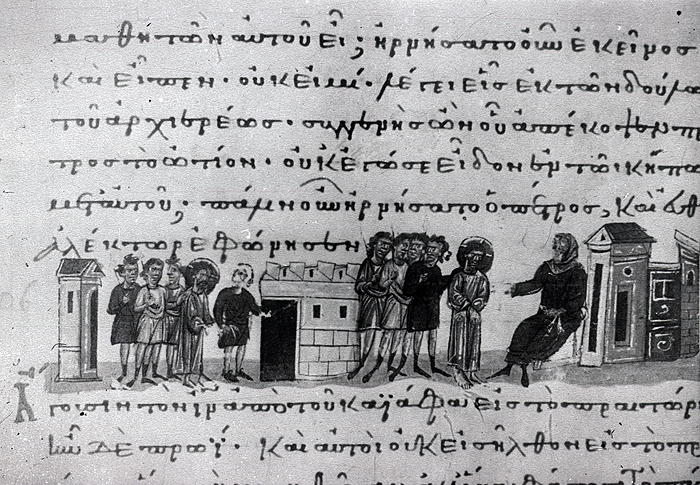 μαθητῶν αὐτοῦ εἶ; ἠρνήσατο οὖν ἐκεῖνος
καὶ εἶπεν· οὐκ εἰμί· λέγει εἷς ἐκ τῶν δούλω
τοῦ ἀρχιερέως· συγγενὴς ὢν οὗ ἀπέκοψεν πέ
τρος τὸ ὠτίον· οὐκ ἐγώ σε εἶδον ἐν τῶ κήπω
μετ' αὐτοῦ; πάλιν οὖν ἠρνήσατο ὁ πέτρος, καὶ εὐθ
ἀλέκτωρ ἐφώνησεν
Ἄγουσιν τὸν ἰν ἀπὸ τοῦ καϊάφα εἰς τὸ πραιτώρι
ἦν δὲ πρωΐ· καὶ αὐτοὶ οὐκ εἰσῆλθον εἰς τὸ π